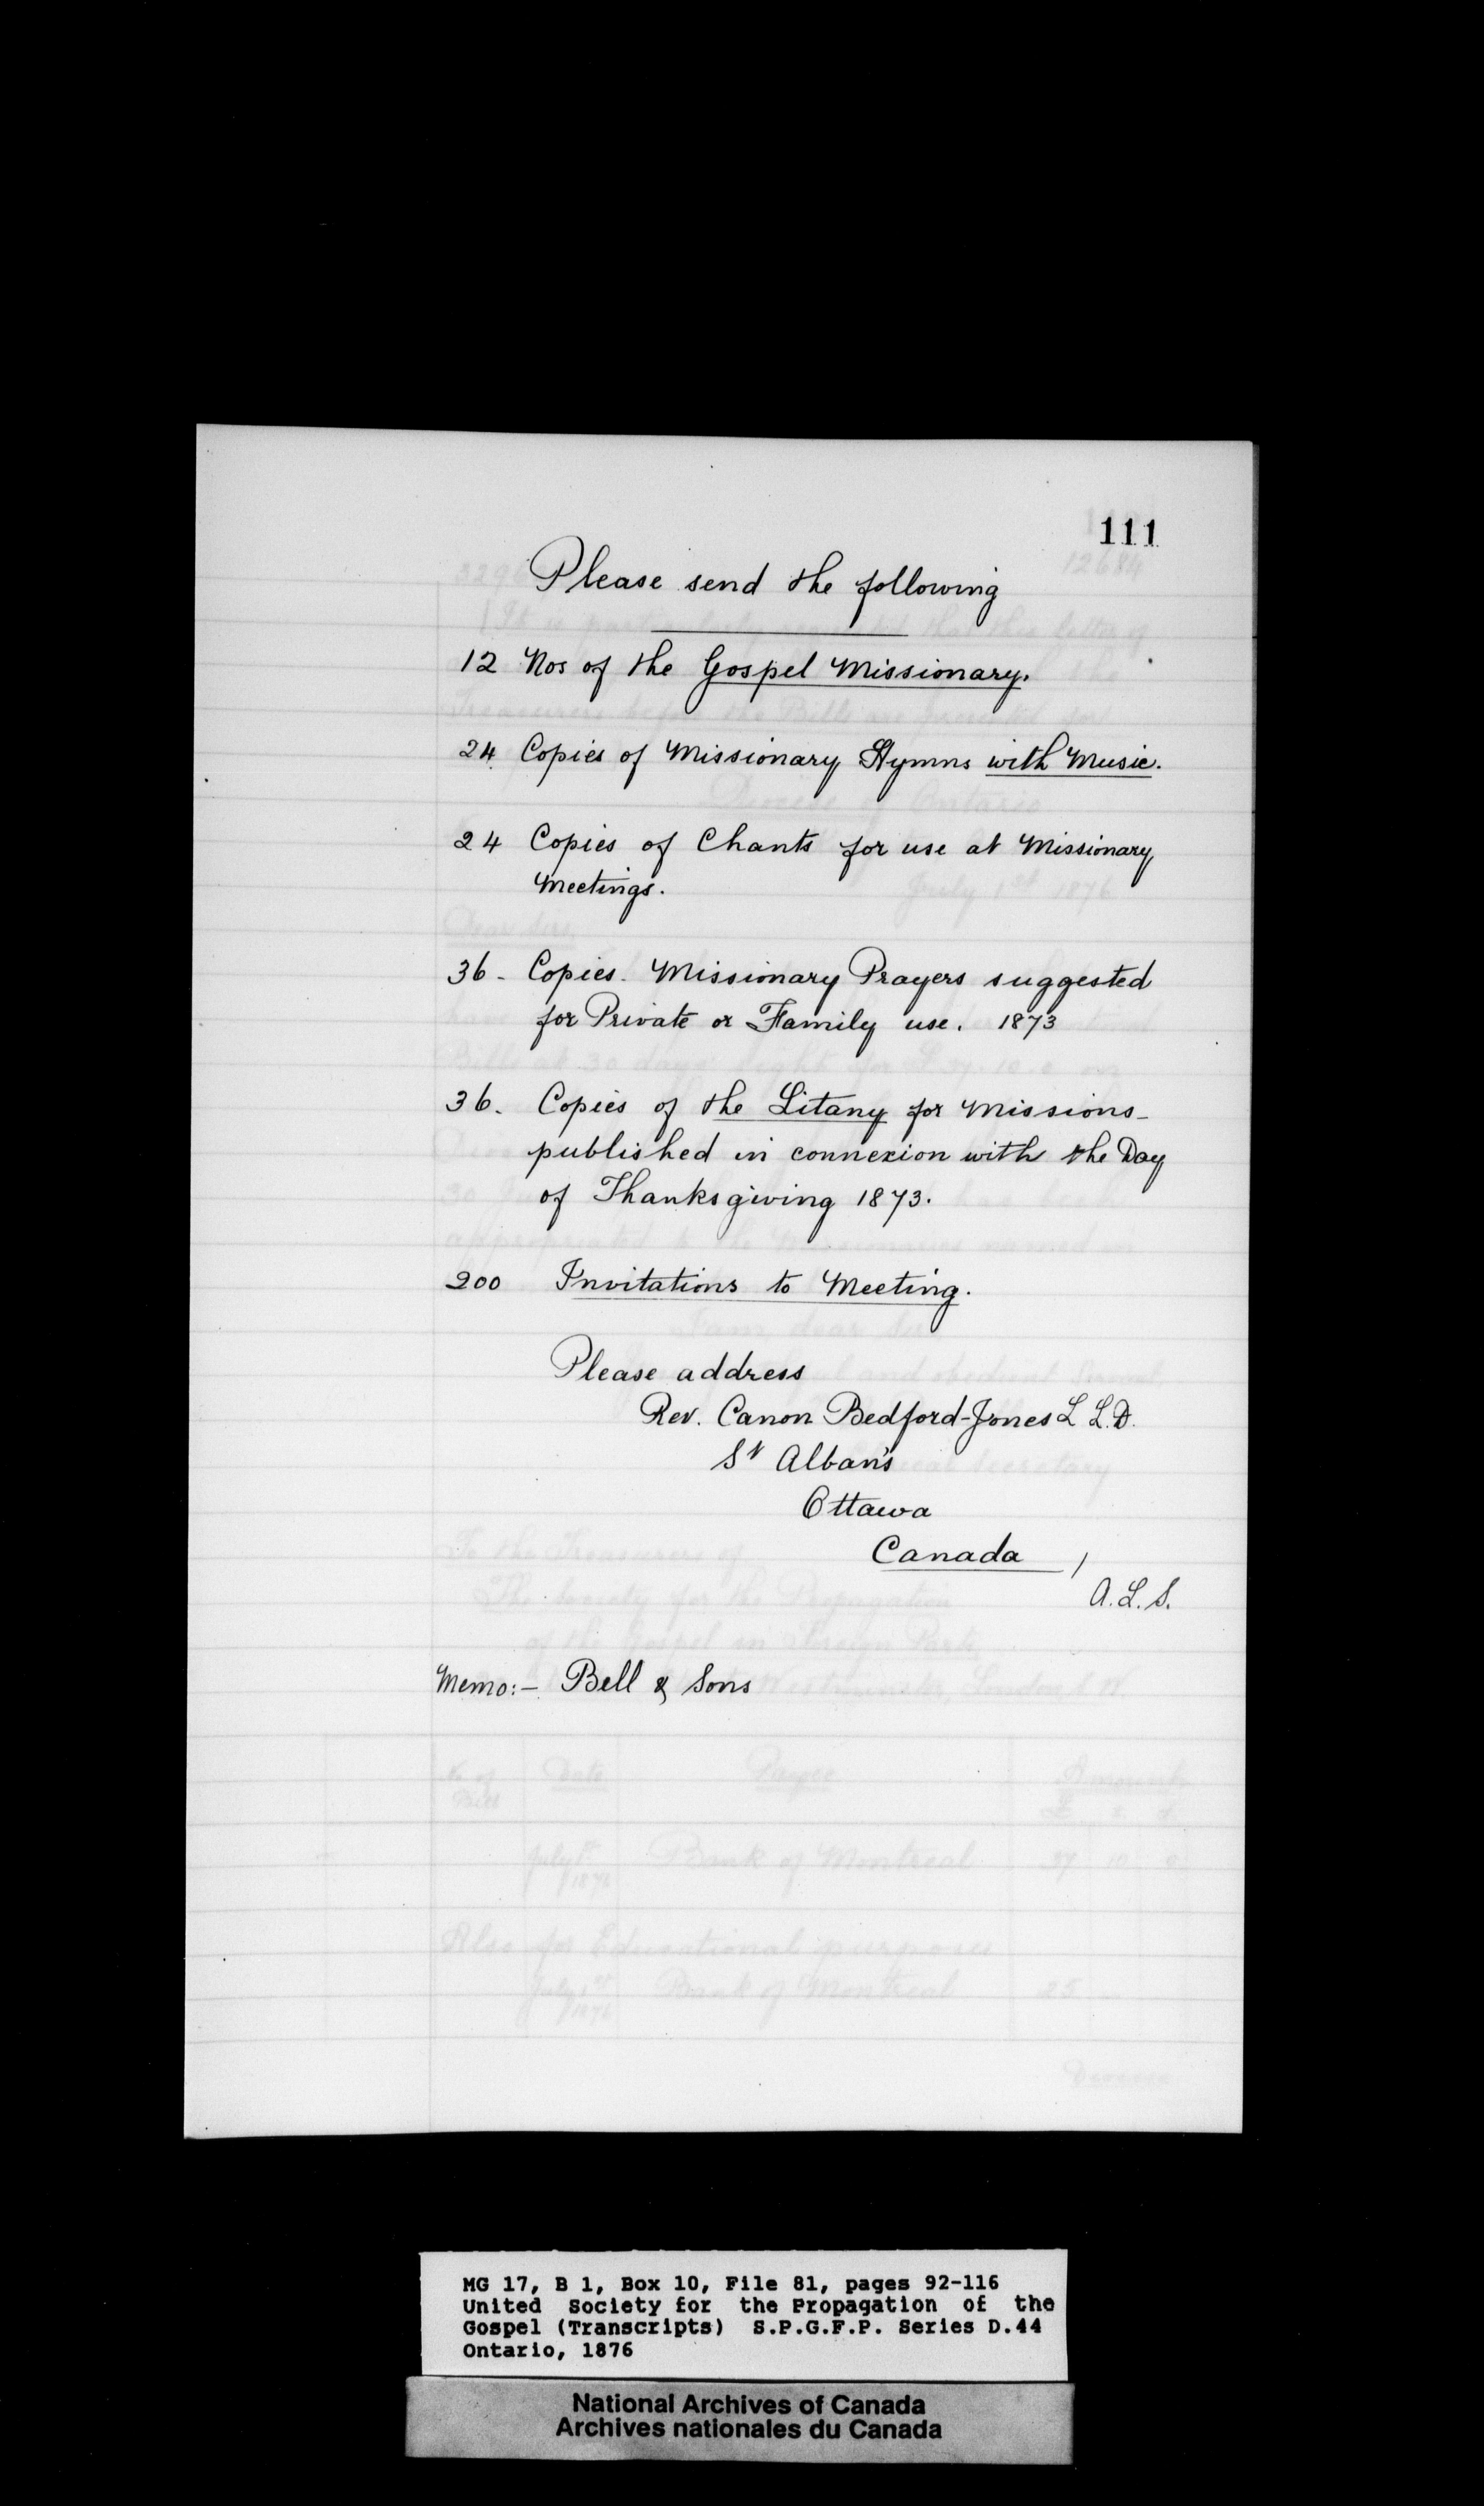 111
Please send the following
12 Nos of the Gospel Missionary.
24 Copies of Missionary Hymns with Music.
24 Copies of Chants for use at Missionary
Meetings.
36 - Copies. Missionary Prayers suggested
for Private or Family use. 1873
36. Copies of the Litany for Missions -
published in connexion with the Day
of Thanksgiving 1873.
200 Invitations to Meeting.
Please address
Rev. Canon Bedford-Jones L L.D.
St Alban's
Ottawa
Canada /
A.L.S.
Memo:- Bell & Sons
MG 17, B 1, Box 10, File 81, pages 92-116
United Society for the Propagation of the
Gospel (Transcripts) S.P.G.F.P. Series D.44
Ontario, 1876
National Archives of Canada
Archives nationales du Canada